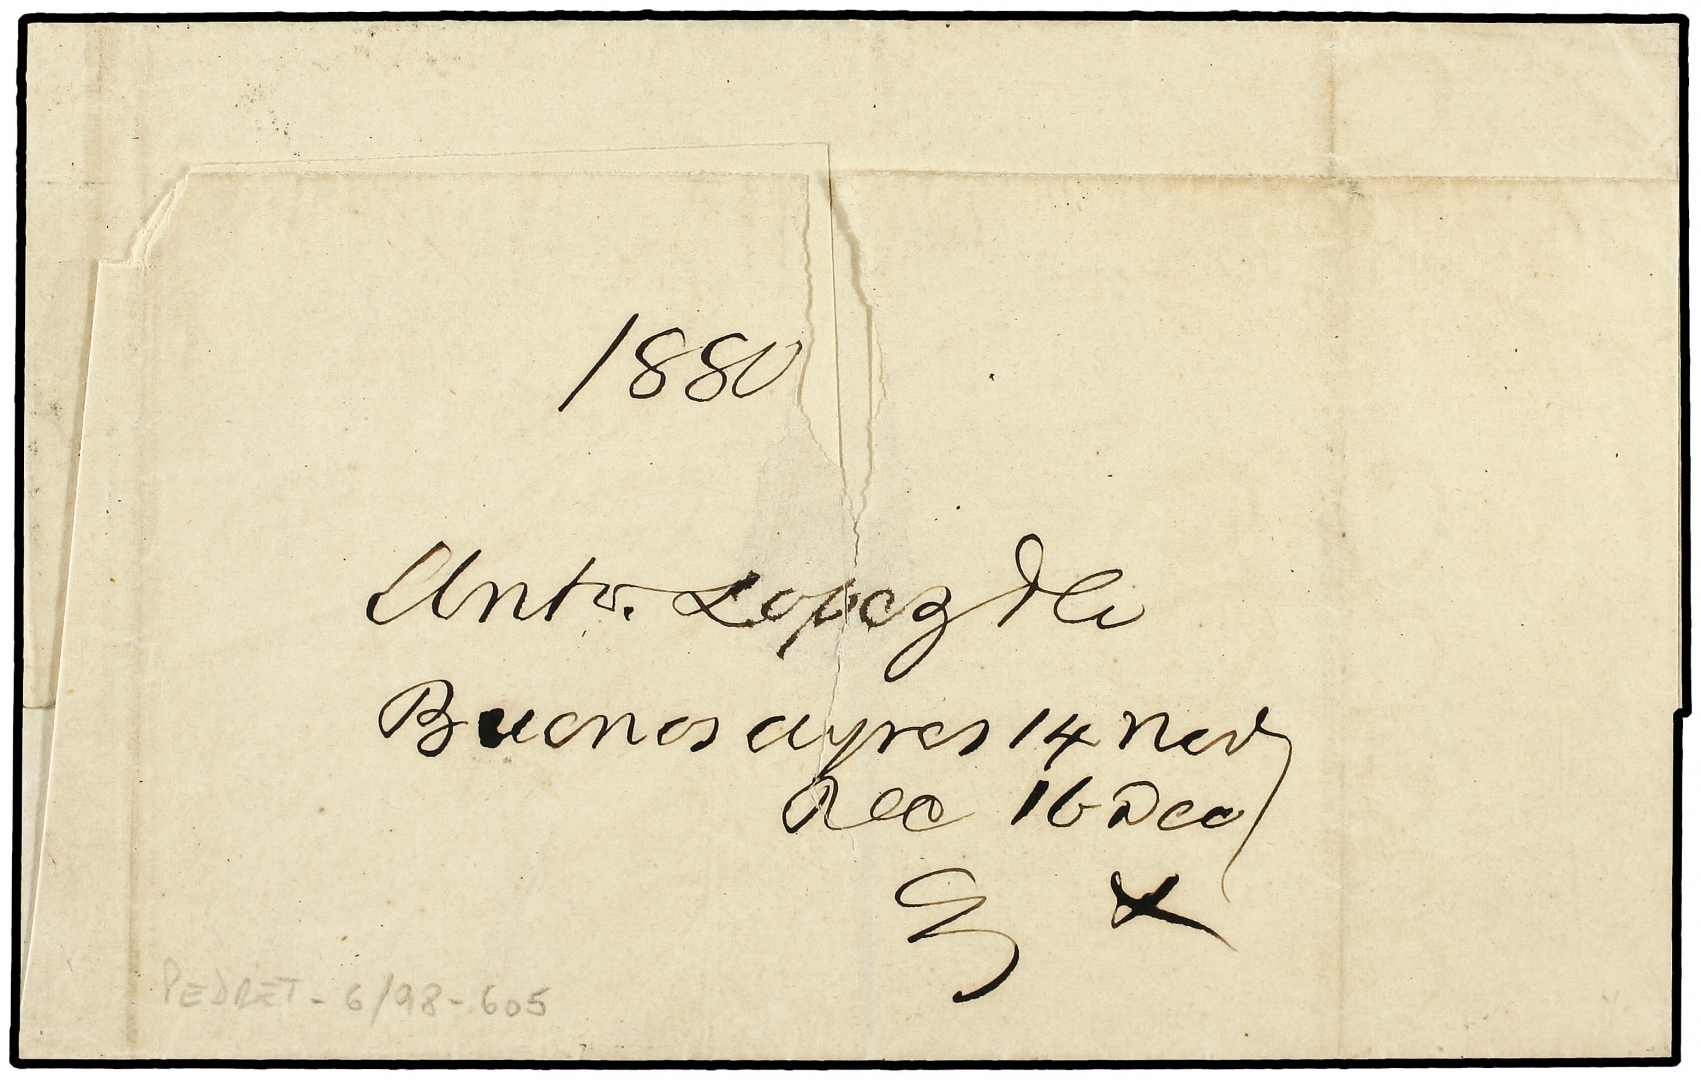 1880
Anto. Lopez de
Buenos ayres 14 Nov
Rec 16 Dec
PEDRET - 6/98 - 605